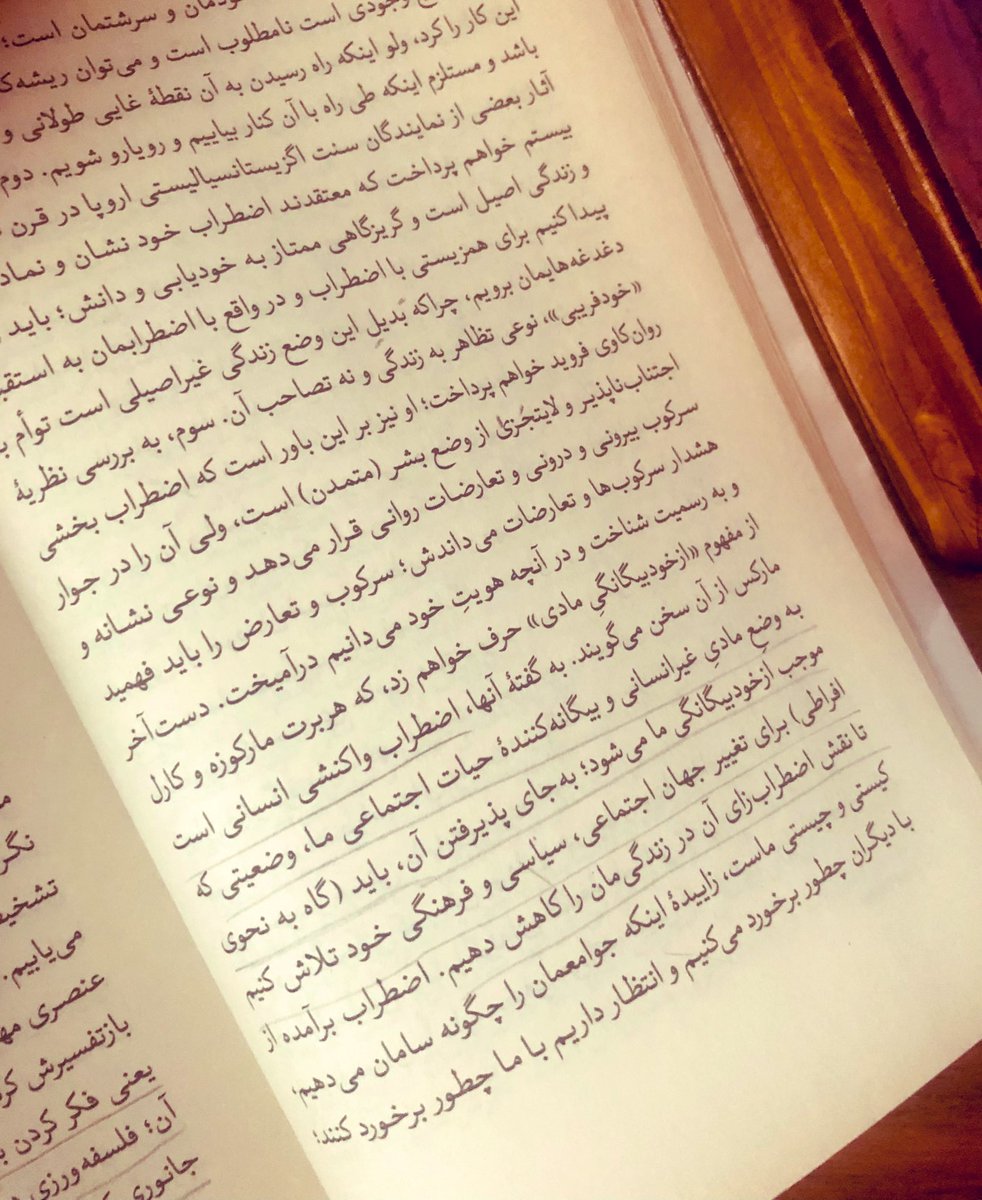 خودمان و سرشتمان است؛
وجودی است نامطلوب است و می‌توان ریشه‌ک
این کار را کرد، ولو اینکه راه رسیدن به آن نقطهٔ غایی طولانی و
باشد و مستلزم اینکه طی راه با آن کنار بیاییم و رویارو شویم. دوم
آثار بعضی از نمایندگان سنت اگزیستانسیالیستی اروپا در قرن
بیستم خواهم پرداخت که معتقدند اضطراب خود نشان و نماد
و زندگی اصیل است و گریزگاهی ممتاز به خودیابی و دانش؛ باید
پیدا کنیم برای همزیستی با اضطراب و در واقع با اضطرابمان به استقب
دغدغه‌هایمان برویم، چراکه بَدیلِ این وضع زندگی غیراصیلی است توأم ب
«خودفریبی»، نوعی تظاهر به زندگی و نه تصاحب آن. سوم، به بررسی نظریهٔ
روان‌کاوی فروید خواهم پرداخت؛ او نیز بر این باور است که اضطراب بخشی
اجتناب‌ناپذیر و لایتجُزیٰ از وضع بشر (متمدن) است، ولی آن را در جوار
سرکوب بیرونی و درونی و تعارضات روانی قرار می‌دهد و نوعی نشانه و
هشدار سرکوب‌ها و تعارضات می‌داندش؛ سرکوب و تعارض را باید فهمید
و به رسمیت شناخت و در آنچه هویتِ خود می‌دانیم درآمیخت. دست‌آخر
از مفهوم «ازخودبیگانگیِ مادی» حرف خواهم زد، که هربرت مارکوزه و کارل
مارکس از آن سخن می‌گویند. به گفتهٔ آنها، اضطراب واکنشی انسانی است
به وضعِ مادیِ غیرانسانی و بیگانه‌کنندهٔ حیات اجتماعی ما، وضعیتی که
موجب ازخودبیگانگی ما می‌شود؛ به‌جای پذیرفتن آن، باید (گاه به نحوی
افراطی) برای تغییر جهان اجتماعی، سیاسی و فرهنگی خود تلاش کنیم
تا نقش اضطراب‌زای آن در زندگی‌مان را کاهش دهیم. اضطراب برآمده از
کیستی و چیستی ماست، زاییدهٔ اینکه جوامعمان را چگونه سامان می‌دهیم،
با دیگران چطور برخورد می‌کنیم و انتظار داریم با ما چطور برخورد کنند؛
نگر
تشخیص
می‌یابیم.
عنصری مه
بازتفسیرش کر
یعنی فکر کردن ب
آن؛ فلسفه‌ورزی
جانوری